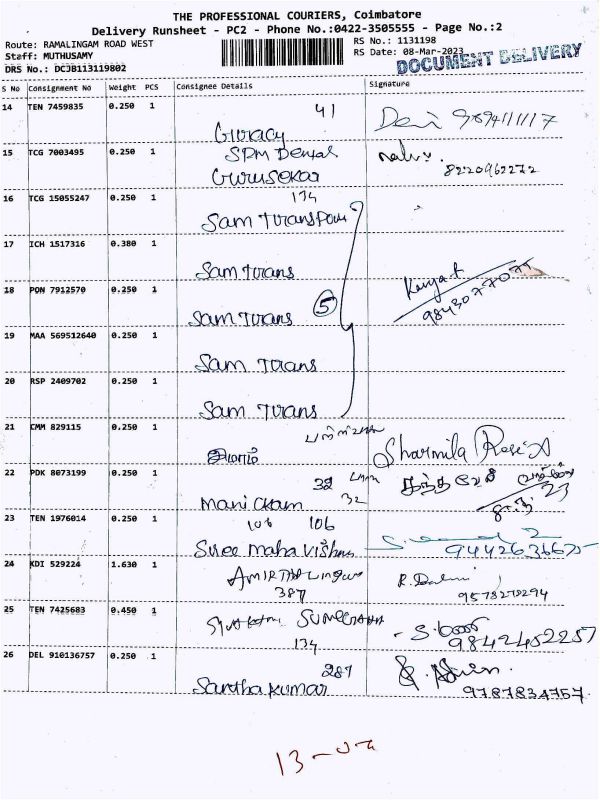 THE PROFESSIONAL COURIERS, Coimbatore
Delivery Runsheet - PC2 - Phone No.:0422-3505555 - Page No.:2
Route: RAMALINGAM ROAD WEST
RS No.: 1131198
Staff: MUTHUSAMY
RS Date: 08-Mar-2023
DRS No.: DCJB113119802
DOCUMENT DELIVERY
S No Consignment No Weight PCS Consignee Details Signature
14 TEN 7459835 0.250 1
41
15 TCG 7003495 0.250 1 SPM Dental
Gurusekar 8220962272
16 TCG 15055247 0.250 1 134
Sam
17 ICH 1517316 0.380 1
Sam Trans
18 PON 7912570 0.250 1
Sam Trans 5
19 MAA 569512640 0.250 1
Sam Trans
20 RSP 2409702 0.250 1
Sam Trans
21 CMM 829115 0.250 1
Sharmila
22 PDK 8073199 0.250 1 32
32
23 TEN 1976014 0.250 1 106 106
Sree Maha Vishnu
24 KDI 529224 1.630 1
387 9578270294
25 TEN 7425683 0.450 1
9842452257
134
26 DEL 910136757 0.250 1 287
Santhakumar 9787834757